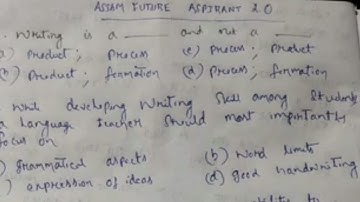 ASSAM FUTURE ASPIRANT 2.0
. Writing is a ____ and not a ____
a) Product ; Process (c) Process ; Product
(b) Product ; formation (d) Process ; formation
. While developing Writing Skill among Students
a Language teacher should most importantly
focus on
) grammatical aspects (b) Word limits
) expression of ideas (d) good handwriting